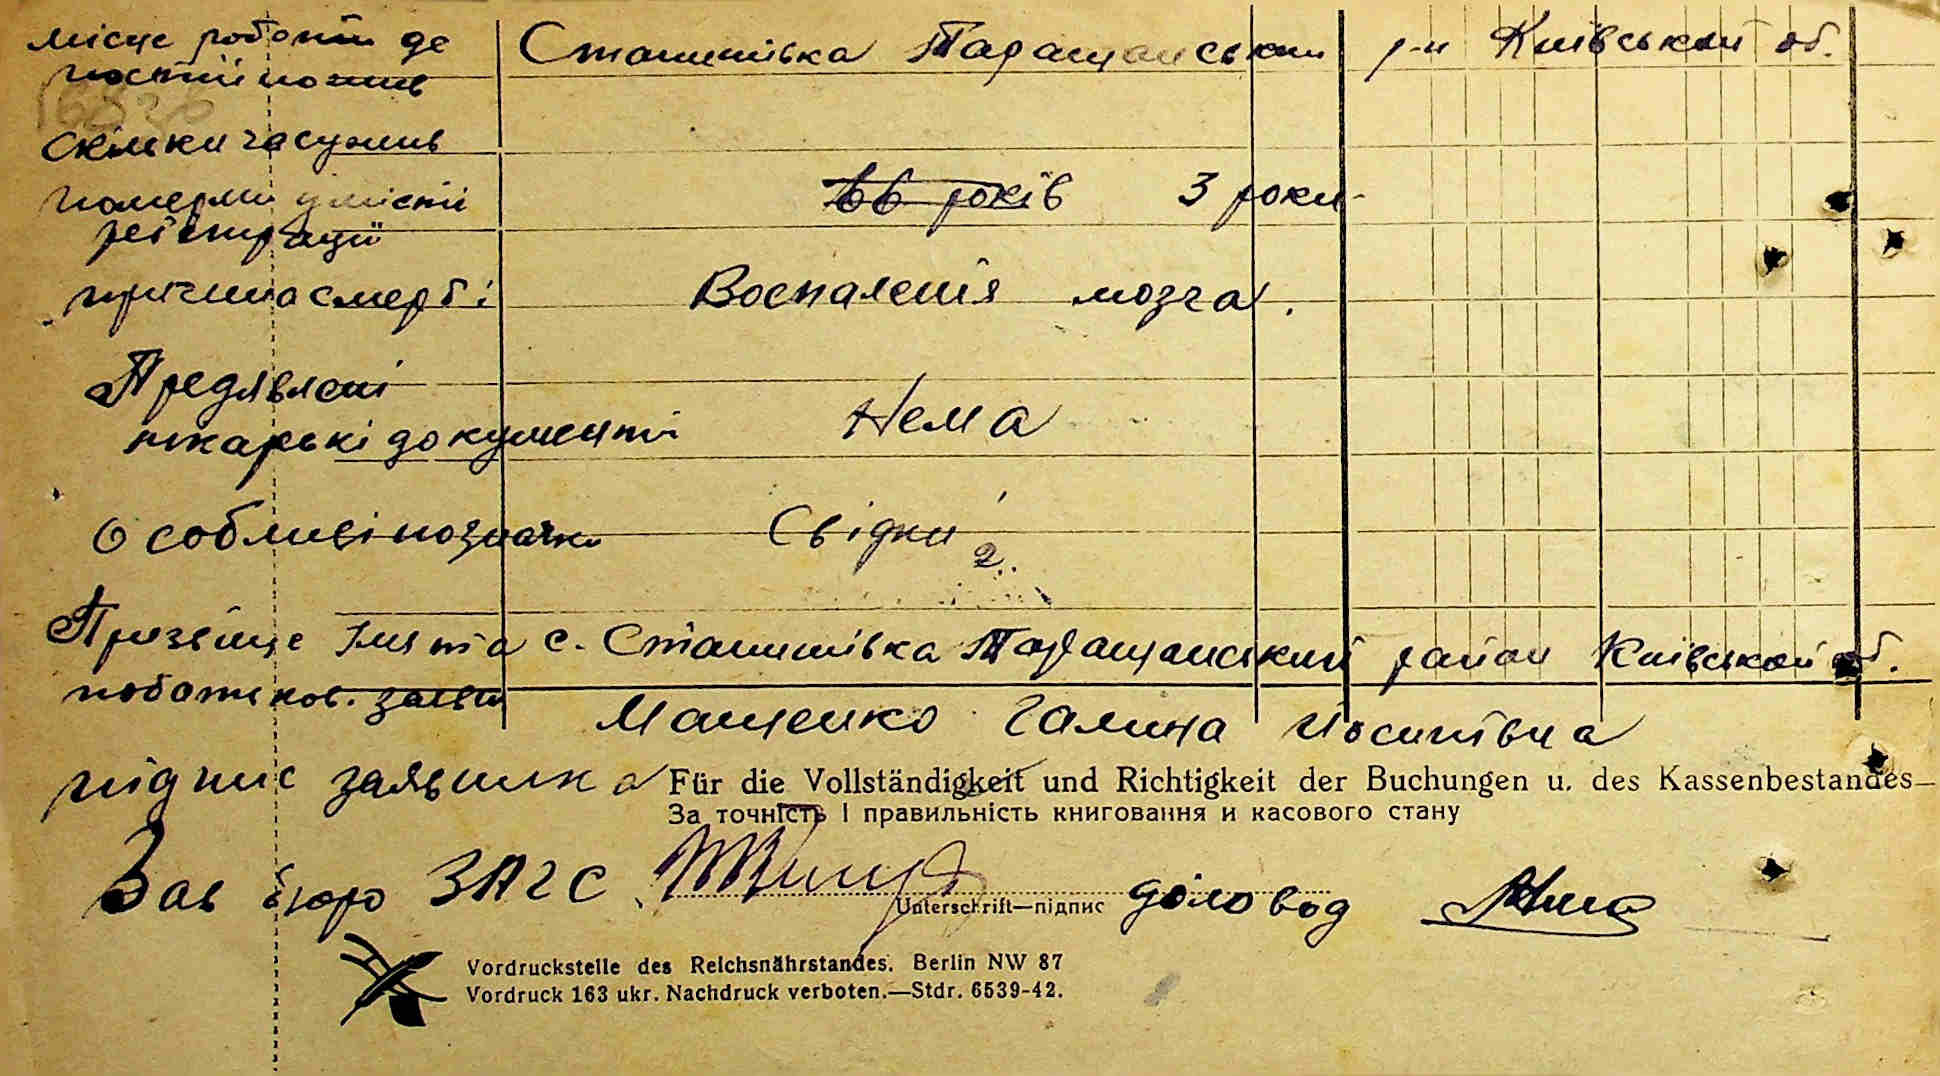 місце роботи де Станишівка Таращанський р-н Київської об.
постійно жив
скільки часу жив
померши у місті 66 років 3 роки
реєстрації
причина смерті Воспаленія мозга.
Предявлені
лікарські документи Нема
Особливі позначки Свідки 2.
Прозвище імя та с. Станишівка Таращанський район Київської об.
побатьков. заяви
Мащенко Галина Йосипівна
підпис заявника Für die Vollständigkeit und Richtigkeit der Buchungen u. des Kassenbestandes—
За точність і правильність книговання и касового стану
Зав бюро ЗАГС Unterschrift—підпис діловод
Vordruckstelle des Reichsnährstandes. Berlin NW 87
Vordruck 163 ukr. Nachdruck verboten.—Stdr. 6539-42.